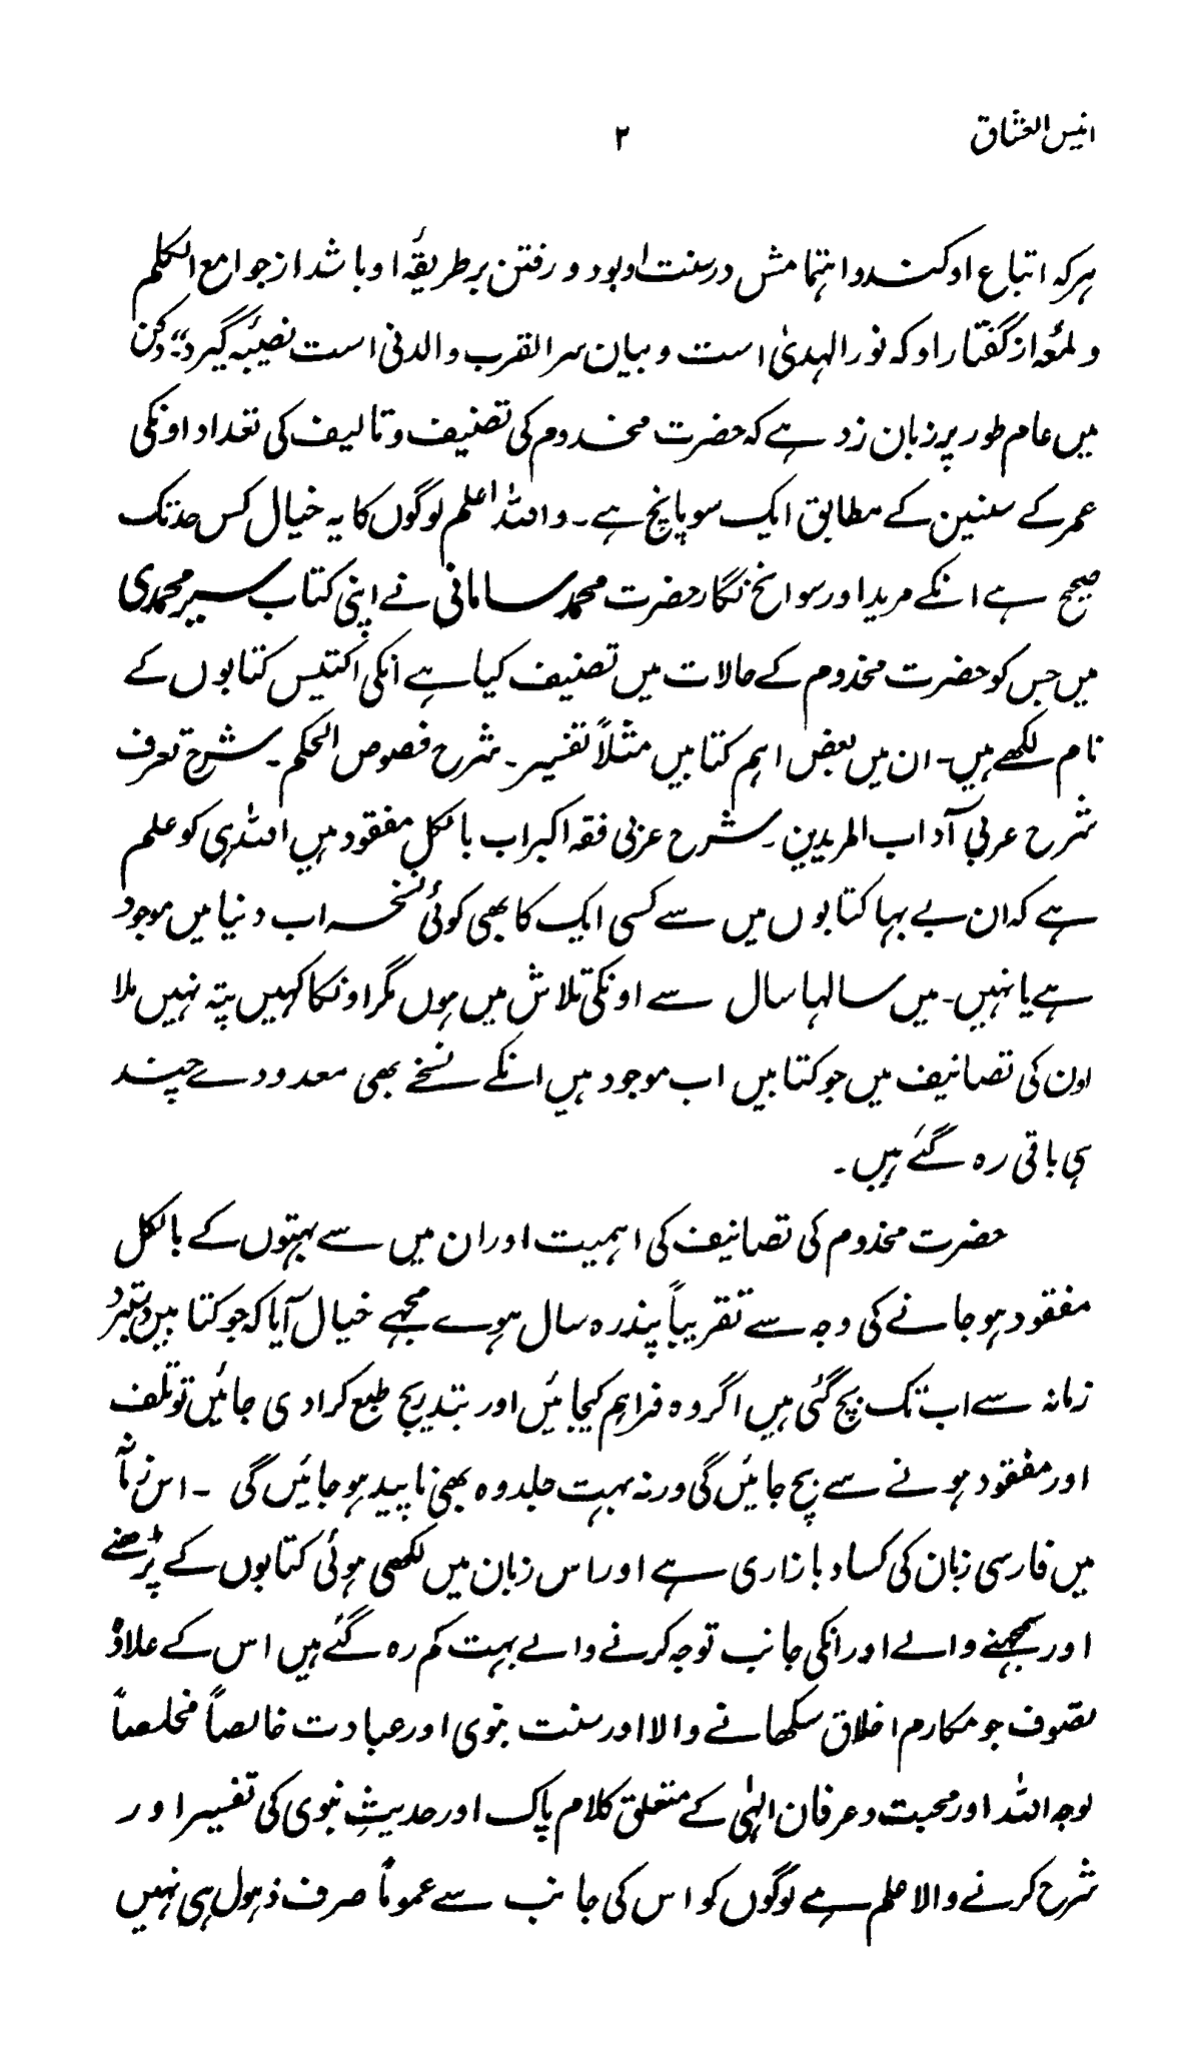 انیس العشاق
۲
ہرکہ اتباع او کند و اہتمامش در سنت او بود و رفتن بر طریقۂ او باشد از جوامع الکلم
و لمعۂ از گفتار او کہ نور الہدیٰ است و بیان سر القرب والدنی است نصیبۂ گیرد؛؛ دکن
میں عام طور پر زبان زد ہے کہ حضرت مخدوم کی تصنیف و تالیف کی تعداد اونکی
عمر کے سنین کے مطابق ایک سو پانچ ہے۔ واللہ اعلم لوگوں کا یہ خیال کس حد تک
صحیح ہے انکے مرید اور سوانح نگار حضرت محمد سامانی نے اپنی کتاب سیر محمدی
میں جس کو حضرت مخدوم کے حالات میں تصنیف کیا ہے انکی اکتیس کتابوں کے
نام لکھے ہیں۔ ان میں بعض اہم کتابیں مثلاً تفسیر۔ شرح فصوص الحکم۔ شرح تعرف
شرح عربی آداب المریدین۔ شرح عربی فقہ اکبر اب بالکل مفقود ہیں اللہ ہی کو علم
ہے کہ ان بے بہا کتابوں میں سے کسی ایک کا بھی کوئی نسخہ اب دنیا میں موجود
ہے یا نہیں۔ میں سالہا سال سے اونکی تلاش میں ہوں مگر اونکا کہیں پتہ نہیں ملا
اون کی تصانیف میں جو کتابیں اب موجود ہیں انکے نسخے بھی معدودے چند
ہی باقی رہ گئے ہیں۔
حضرت مخدوم کی تصانیف کی اہمیت اور ان میں سے بہتوں کے بالکل
مفقود ہو جانے کی وجہ سے تقریباً پندرہ سال ہوے مجھے خیال آیا کہ جو کتابیں دستبرد
زمانہ سے اب تک بچ گئی ہیں اگر وہ فراہم کیجائیں اور بتدریج طبع کرا دی جائیں تو تلف
اور مفقود ہونے سے بچ جائیں گی ورنہ بہت جلد وہ بھی ناپید ہو جائیں گی ۔ اس زمانہ
میں فارسی زبان کی کساد بازاری ہے اور اس زبان میں لکھی ہوئی کتابوں کے پڑھنے
اور سمجھنے والے اور انکی جانب توجہ کرنے والے بہت کم رہ گئے ہیں اس کے علاوہ
تصوف جو مکارم اخلاق سکھانے والا اور سنت نبوی اور عبادت خالصاً مخلصاً
لوجہ اللہ اور محبت و عرفان الہٰی کے متعلق کلام پاک اور حدیثِ نبوی کی تفسیر اور
شرح کرنے والا علم ہے لوگوں کو اس کی جانب سے عموماً صرف ذہول ہی نہیں